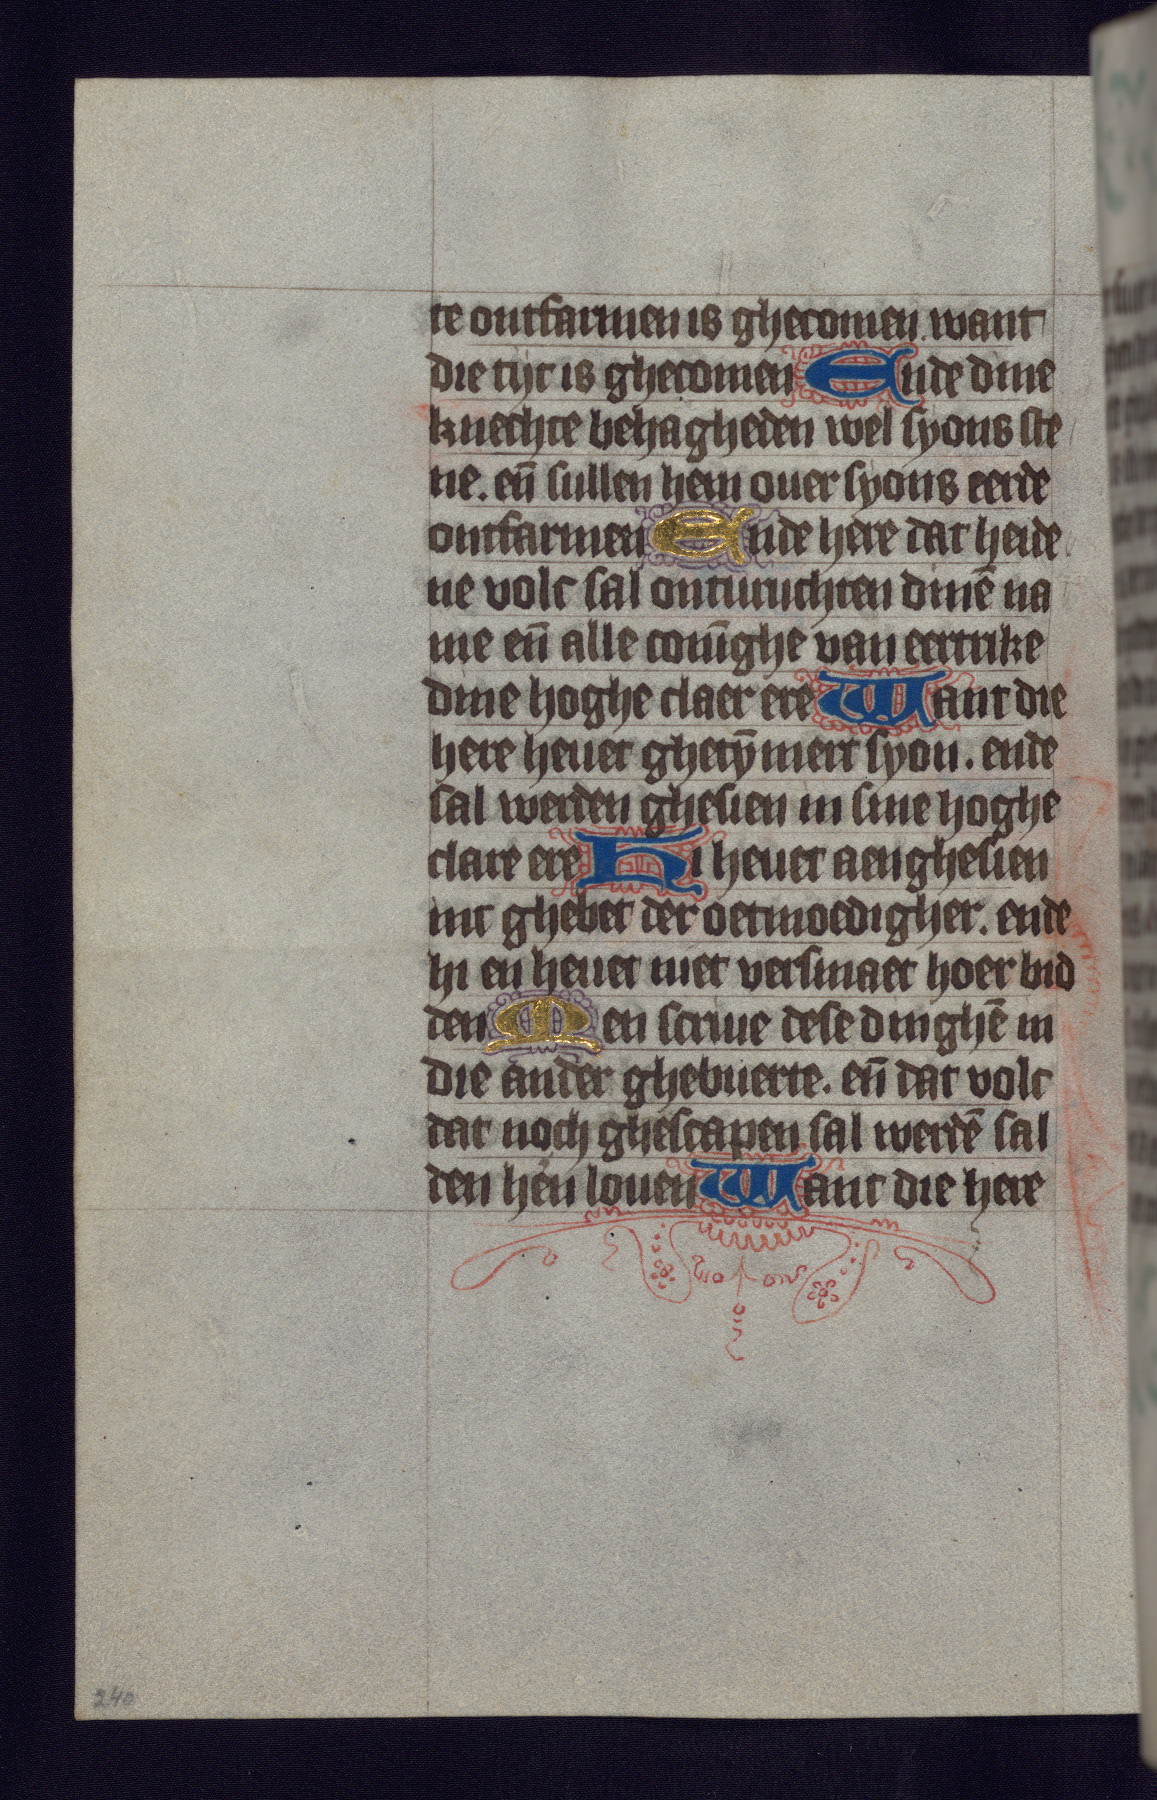 te ontfarmen is ghecomen. want
die tijt is ghecomen Ende dine
knechte behagheden wel syons ste
ne. en̄ sullen hem ouer syons eerde
ontfarmen Ende here dat heide
ne volc sal onturuchten dinē na
me en̄ alle conīghe van eertrike
dine hoghe claer ere Want die
here heuet ghetȳmert syon. ende
sal werden ghesien in sine hoghe
clare ere Hi heuet aenghesien
int ghebet der oetmoedigher. ende
hi en heuet niet versmaet hoer bid
den Men scriue dese dinghē in
die ander ghebuerte. en̄ dat volc
dat noch ghescapen sal werdē sal
den hēn louen Want die here
240